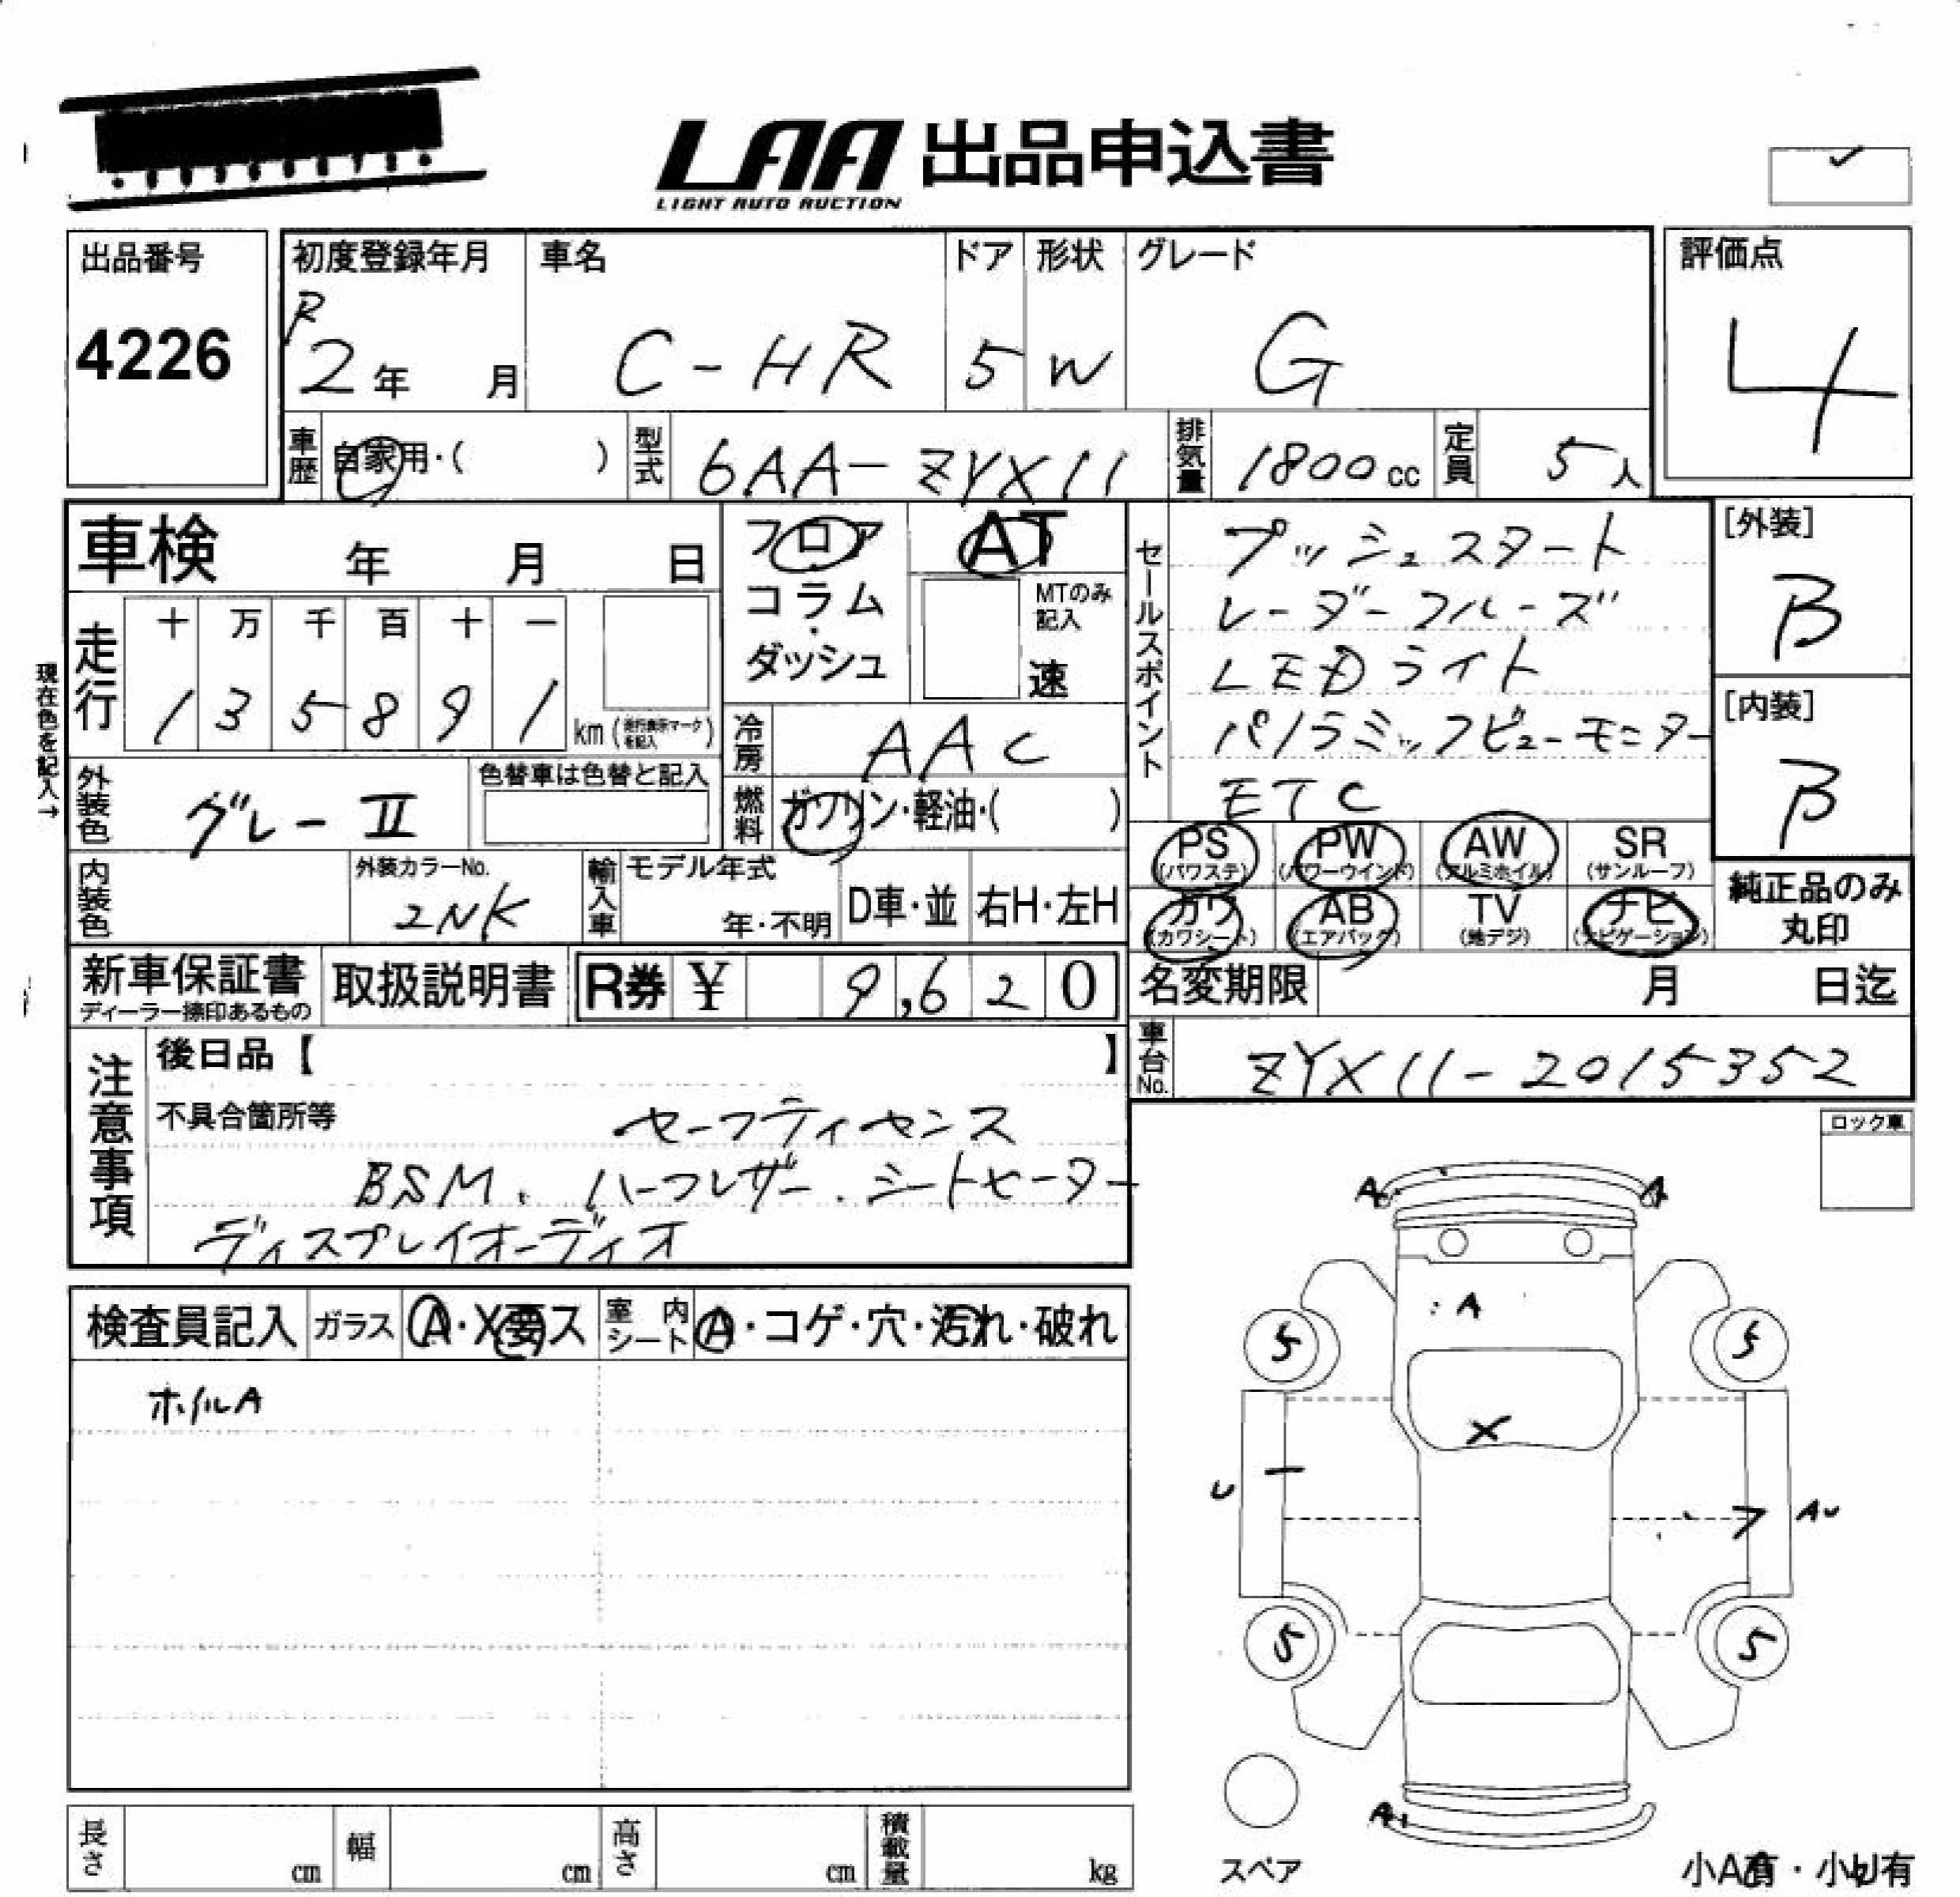 LAA 出品申込書
LIGHT AUTO AUCTION
出品番号
4226
初度登録年月
R
2年 月
車名
C-HR
ドア
5
形状
W
グレード
G
評価点
4
車歴 自家用・( )
型式 6AA-ZYX11
排気量 1800cc
定員 5人
車検 年 月 日
フロア
コラム
・
ダッシュ
AT
MTのみ
記入
速
セールスポイント
プッシュスタート
レーダークルーズ
LEDライト
パノラミックビューモニター
ETC
[外装]
B
[内装]
B
現在色を記入→
走行
十 万 千 百 十 一
1 3 5 8 9 1 km (走行表示マークを記入)
冷房 AAC
外装色 グレーII
色替車は色替と記入
燃料 ガソリン・軽油・( )
PS (パワステ)
PW (パワーウインド)
AW (アルミホイル)
SR (サンルーフ)
カワ (カワシート)
AB (エアバック)
TV (地デジ)
ナビ (ナビゲーション)
純正品のみ
丸印
内装色
外装カラーNo.
2NK
輸入車
モデル年式
年・不明
D車・並
右H・左H
新車保証書
ディーラー捺印あるもの
取扱説明書
R券 ¥ 9,620
名変期限 月 日迄
車台No. ZYX11-2015352
注意事項
後日品【 】
不具合箇所等
セーフティセンス
BSM、ハーフレザー、シートヒーター
ディスプレイオーディオ
ロック車
検査員記入
ガラス A・X要ス
室内シート A・コゲ・穴・汚れ・破れ
ホイルA
A A
A
5 5
X
U
AU
5 5
A1
スペア
長さ cm
幅 cm
高さ cm
積載量 kg
小A有・小U有